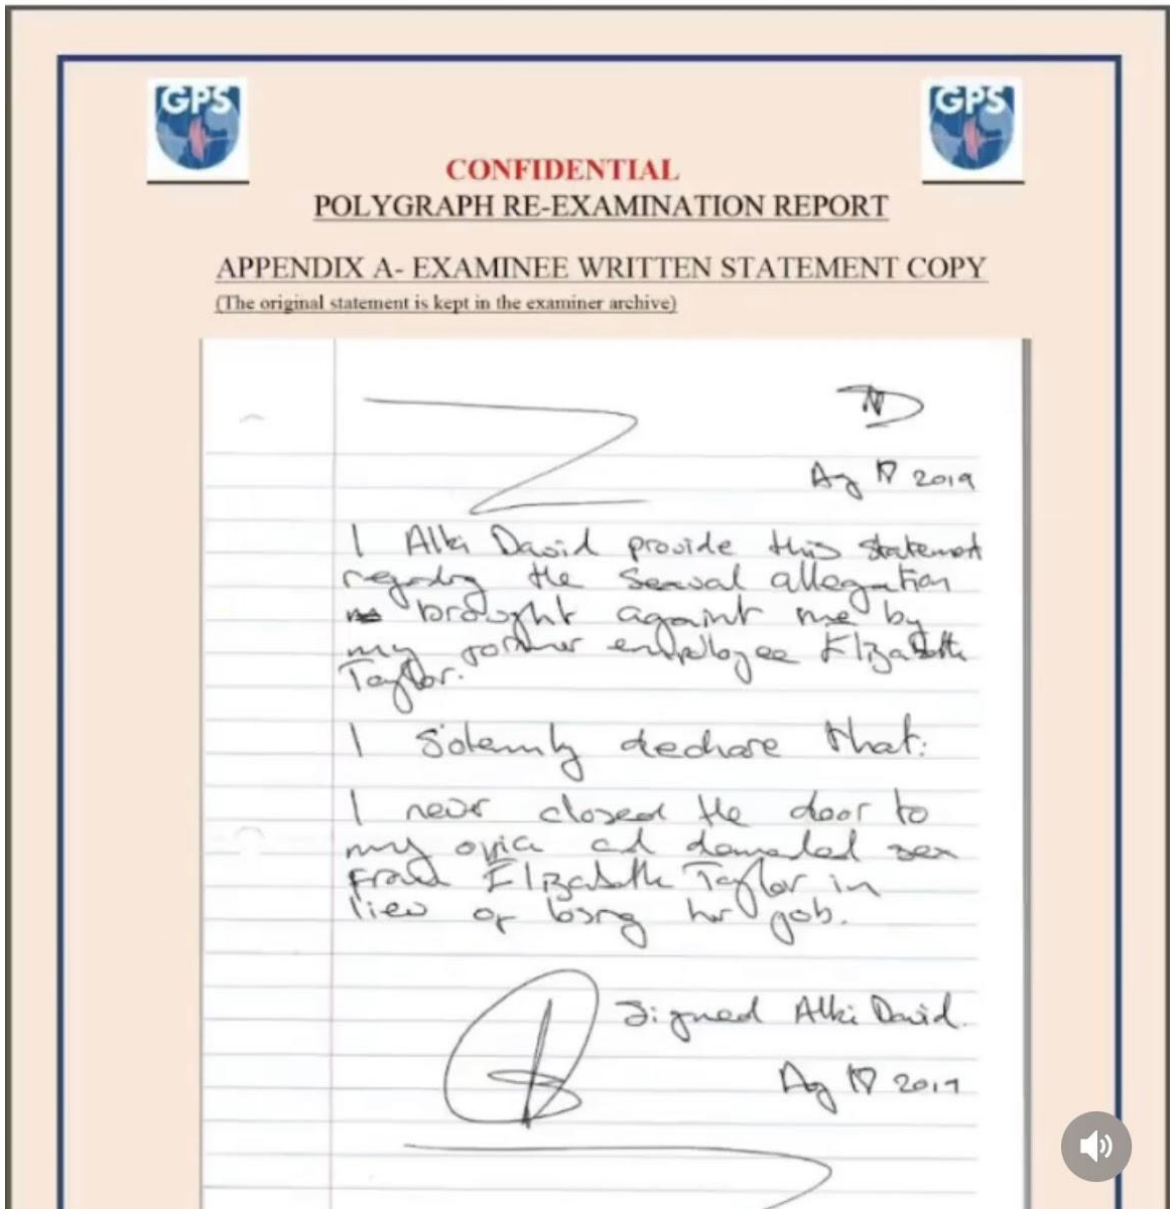 GPS GPS
CONFIDENTIAL
POLYGRAPH RE-EXAMINATION REPORT
APPENDIX A- EXAMINEE WRITTEN STATEMENT COPY
(The original statement is kept in the examiner archive)
2019
I Alki David provide this statement
regarding the sexual allegation
brought against me by
my former employee Elizabeth
Taylor.
I solemnly declare that:
I never closed the door to
my office and demanded sex
from Elizabeth Taylor in
lieu of losing her job.
Signed Alki David.
2019